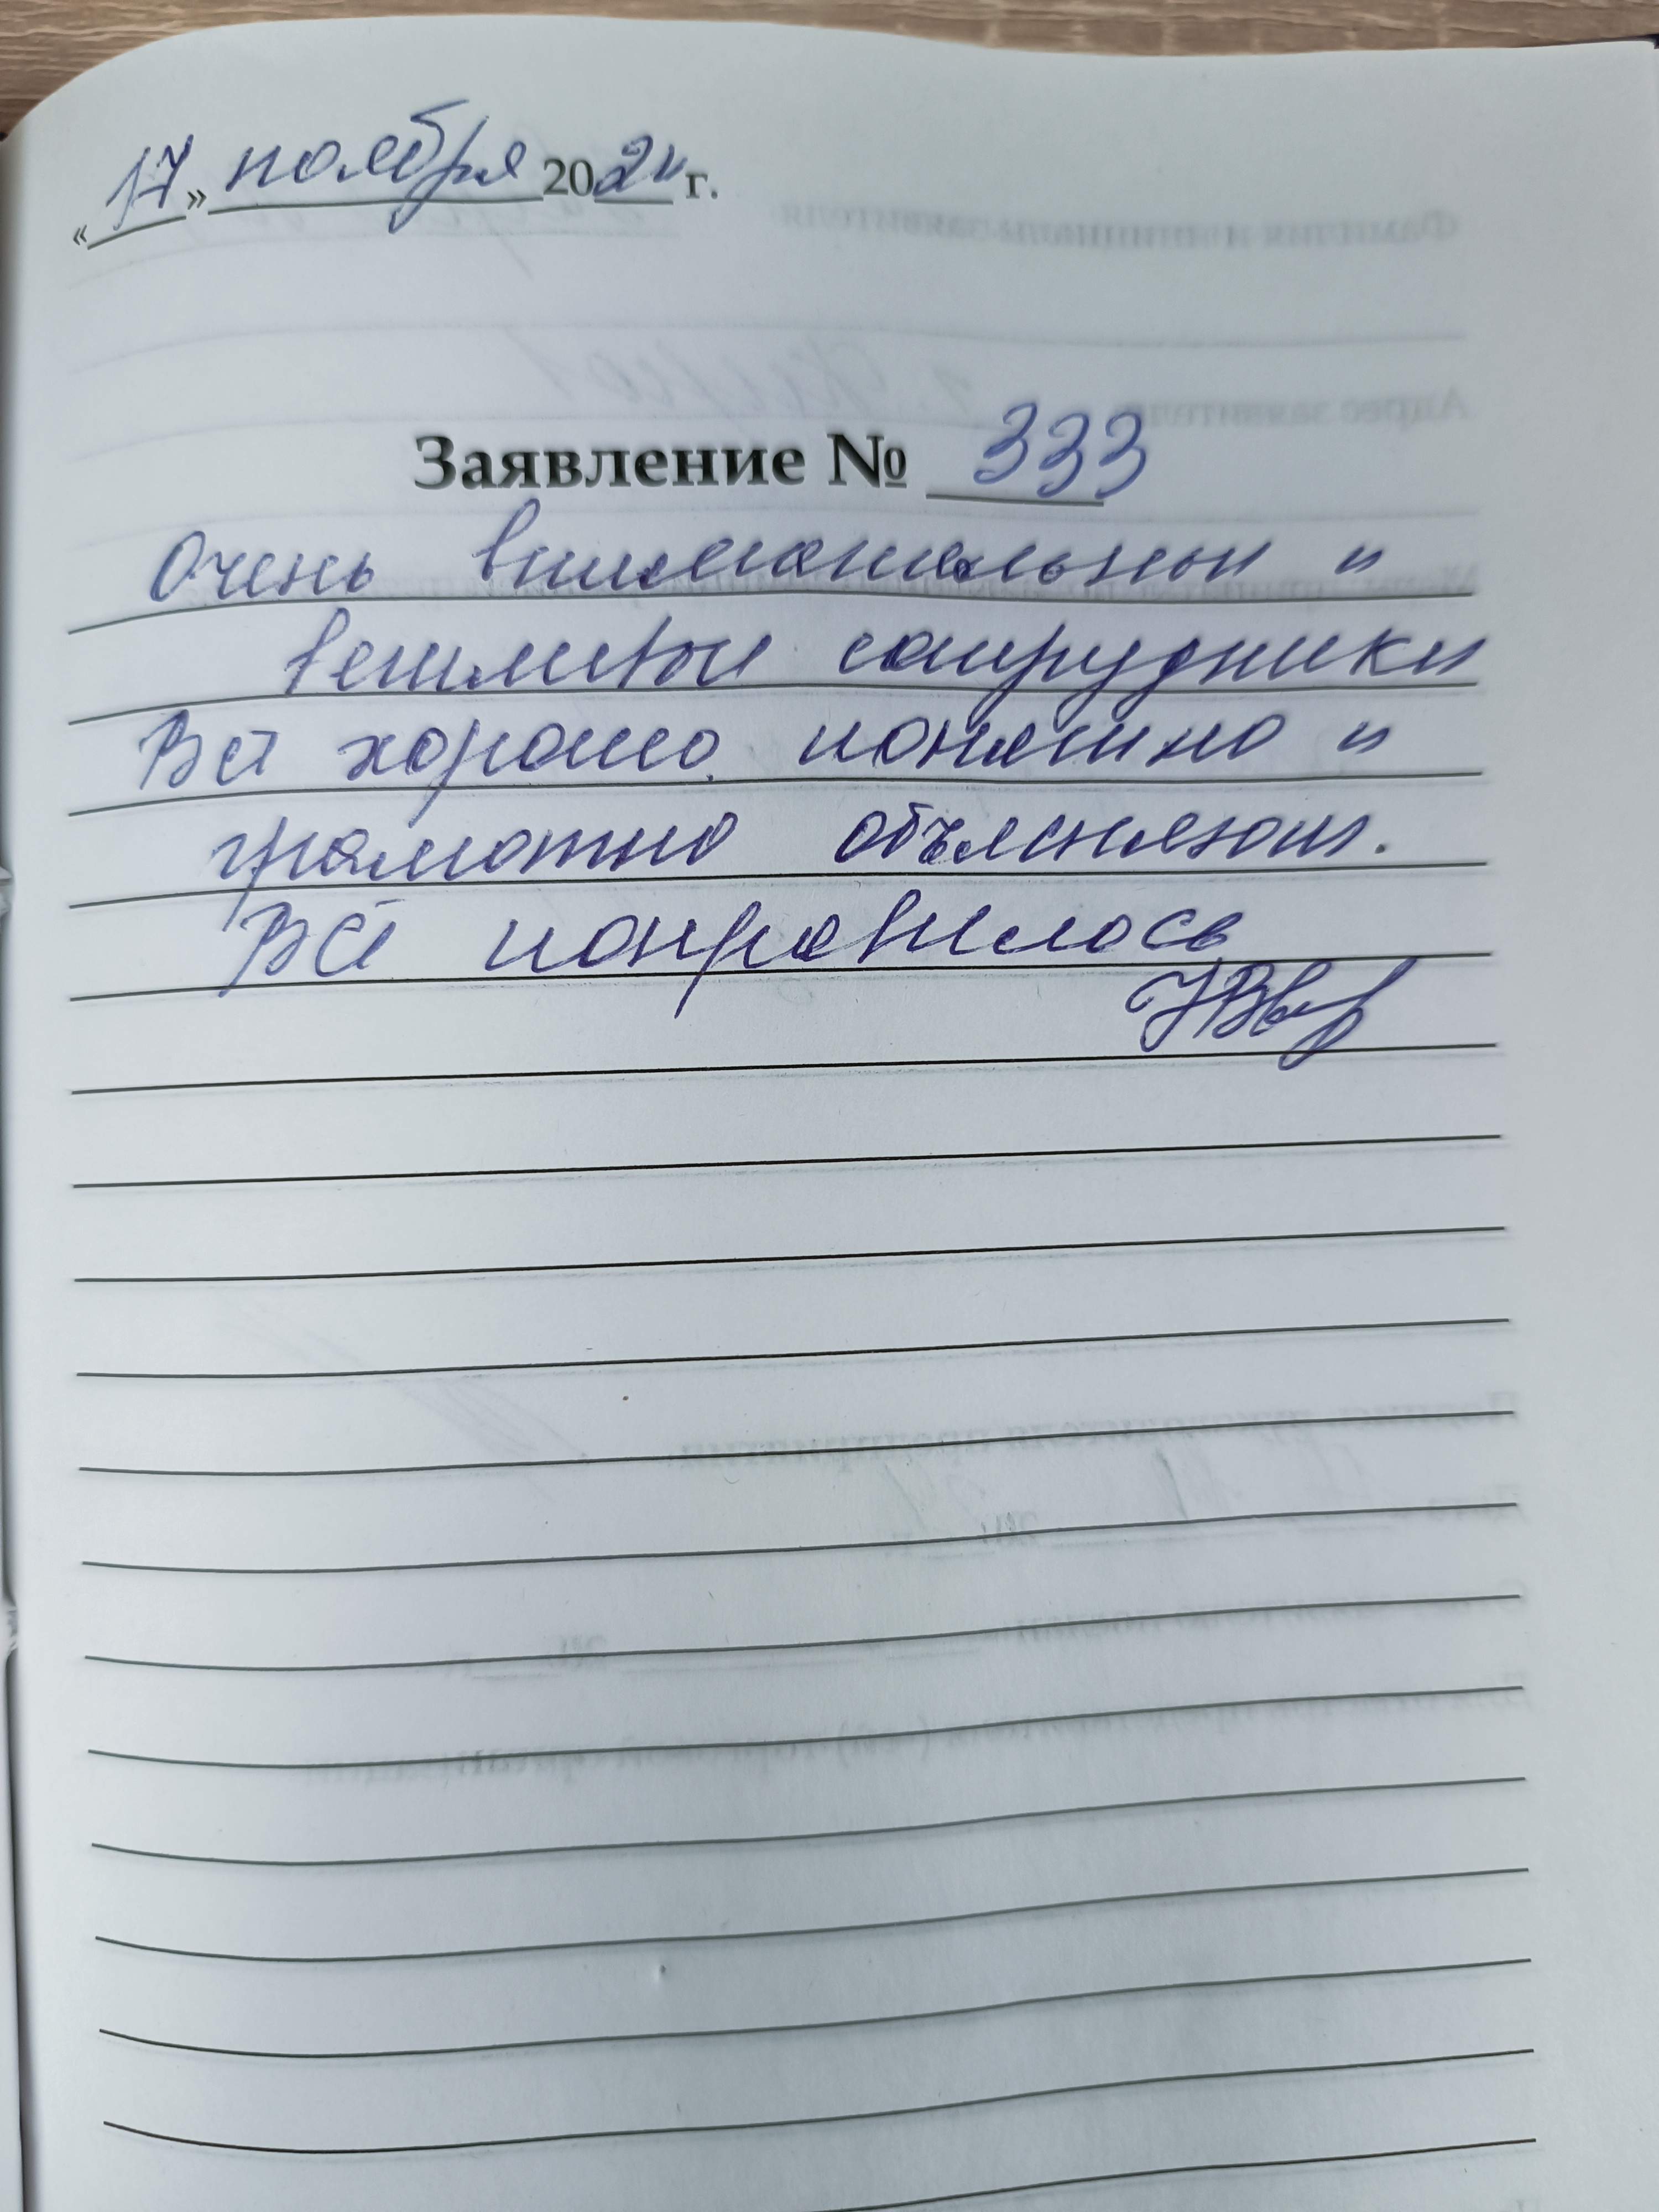 «17» ноября 2024 г.
Заявление № 333
Очень внимательны и
вежливы сотрудники
Всё хорошо, понятно и
грамотно объясняют.
Всё понравилось